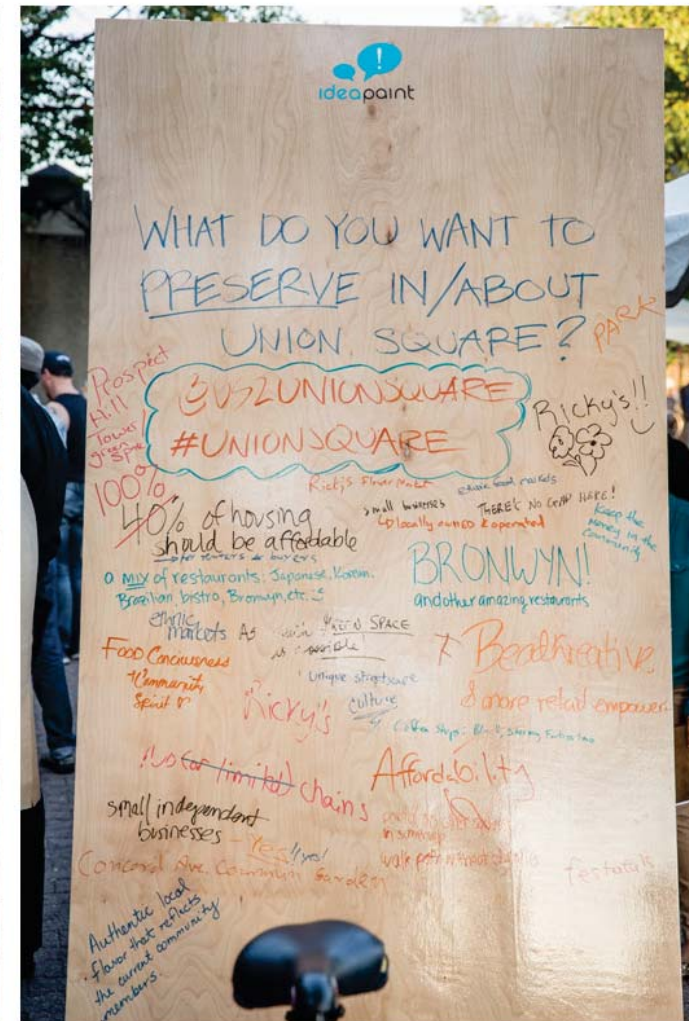 !
ideapaint
WHAT DO YOU WANT TO
PRESERVE IN/ABOUT
UNION SQUARE?
PARK
Prospect
Hill
Tower
green
@US2UNIONSQUARE
#UNIONSQUARE
Ricky's!!
100%
40% of housing
should be affordable
Ricky's Flower Market
small businesses
locally owned & operated
THERE'S NO CRAP HERE!
Keep the
money in the
community
O MIX of restaurants: Japanese, Korean,
Brazilian, bistro, Bronwyn, etc.
BRONWYN!
and other amazing restaurants
ethnic
markets
AS
GREEN SPACE
Food Conciousness
Community
Spirit
unique streetscape
culture
"Ricky's
Beadkreative
& more retail empower
No (or limited) chains
Affordability
small independent
businesses
Yes! yes!
Concord Ave. Commun Garden
festivals
Authentic local
flavor that reflects
the current community
members.